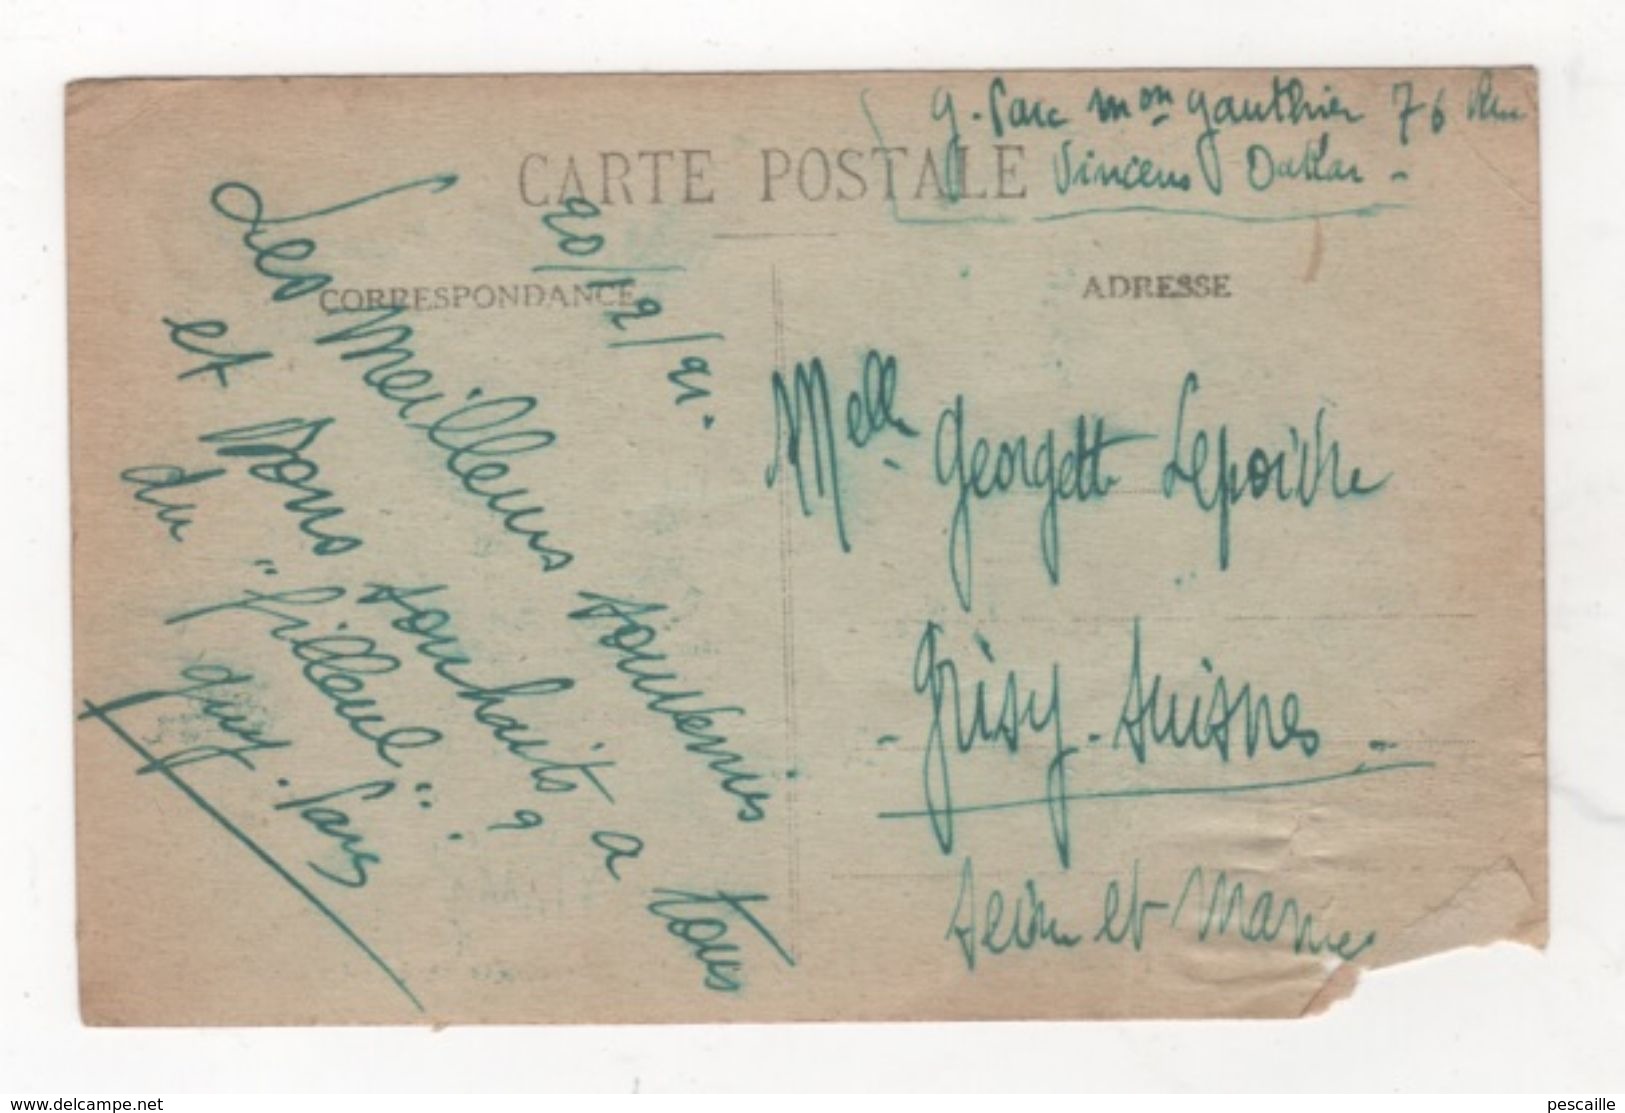 g. Parc mon gauthier 76 Rue
Vincens Dakar -
CARTE POSTALE
20/12/21.
CORRESPONDANCE
Les Meilleurs souvenirs
et Bons souhaits a tous
du "filleul".
guy. Parc
ADRESSE
Melle Georgette Lepoivre
- Grisy-Suisnes -
Seine et Marne
www.delcampe.net
pescaille